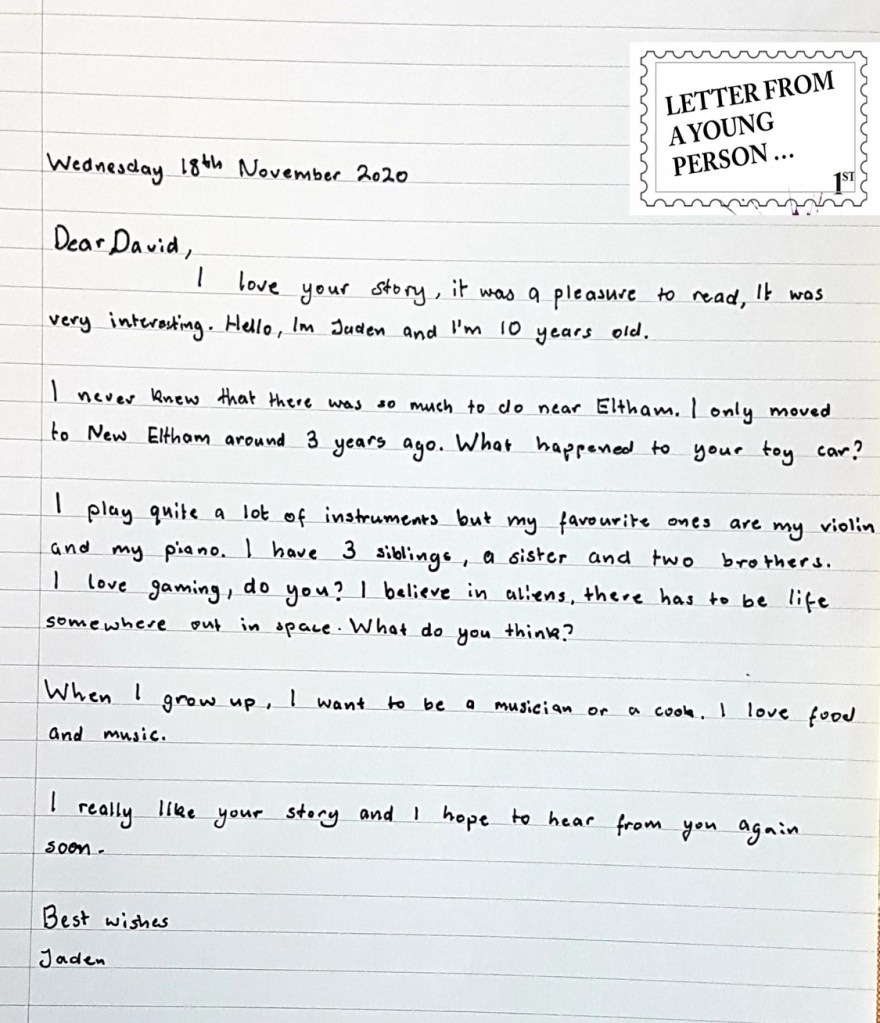 LETTER FROM
A YOUNG
PERSON ...
1ST
Wednesday 18th November 2020
Dear David,
I love your story, it was a pleasure to read, It was
very interesting. Hello, Im Jaden and I'm 10 years old.
I never knew that there was so much to do near Eltham. I only moved
to New Eltham around 3 years ago. What happened to your toy car?
I play quite a lot of instruments but my favourite ones are my violin
and my piano. I have 3 siblings, a sister and two brothers.
I love gaming, do you? I believe in aliens, there has to be life
somewhere out in space. What do you think?
When I grow up, I want to be a musician or a cook. I love food
and music.
I really like your story and I hope to hear from you again
soon.
Best wishes
Jaden